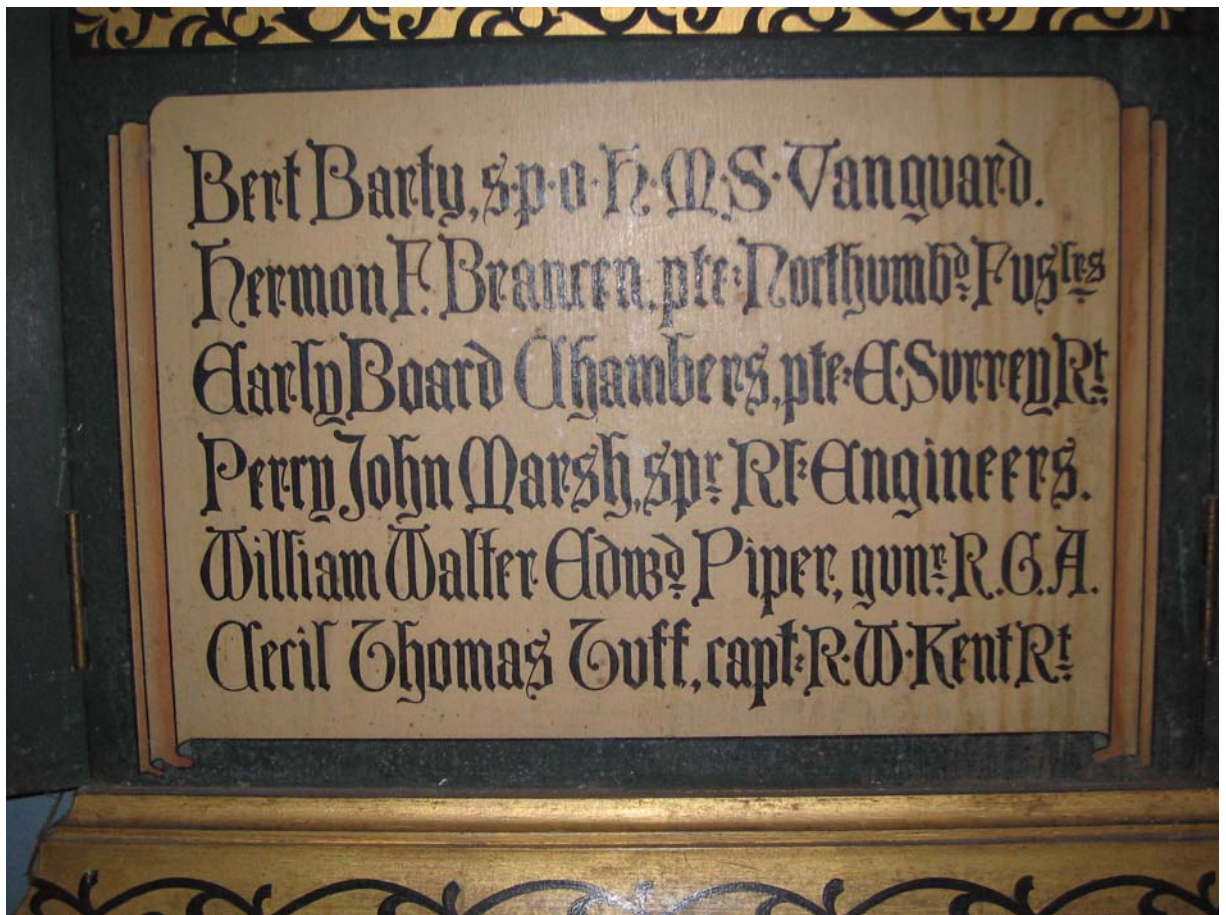 Bert Barty, s·p·o·H·M·S·Vanguard.
Hermon F. Brancen, pte: Northumbd. Fuslrs
Early Board Chambers, pte: E. Surrey Rt.
Perry John Marsh, spr. Rl: Engineers.
William Walter Edwd. Piper, gunr. R.G.A.
Cecil Thomas Tuff, capt: R·W·Kent Rt.